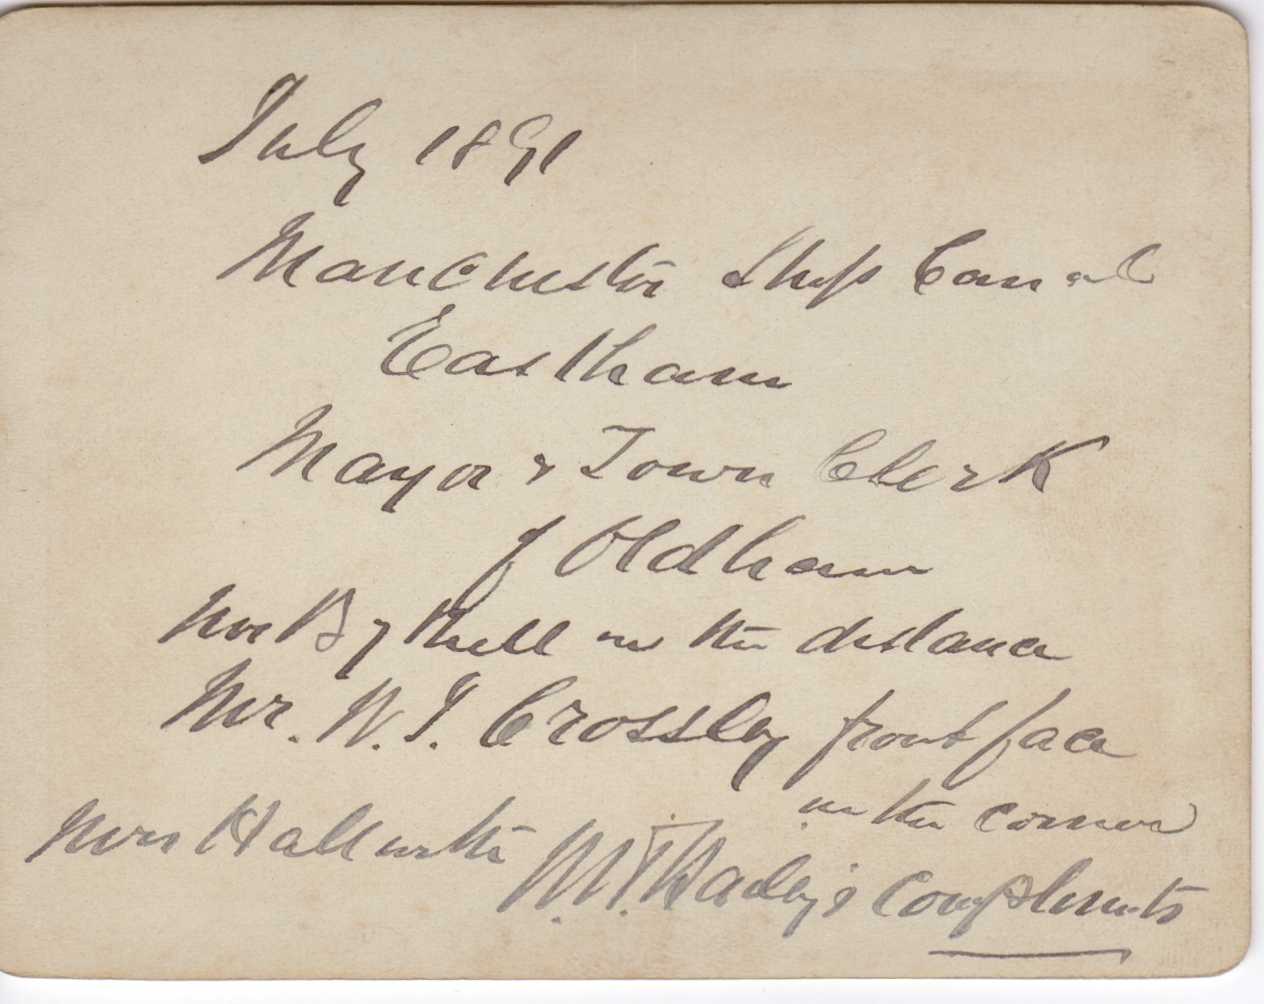 July 1891
Manchester Ship Canal
Eastham
Mayor & Town Clerk
of Oldham
Mr Bythell in the distance
Mr. W. J. Crossley front face
in the corner
Mrs Hall with
Compliments